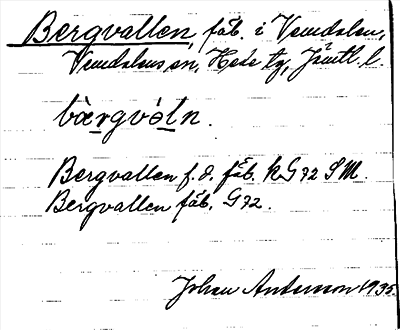 Bergvallen, fäb. i Vemdalen,
Vemdalens sn, Hede tg, Jämtl. l.
bæ̀rgvȯ́ln.
Bergvallen f. d. fäb. kG72 SM.
Bergvallen fäb. G72.
Johan Antonson 1935.